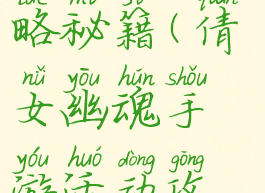 略秘籍(倩
nǚ yōu hún shǒu
女幽魂手
yóu huó dòng gōng
游活动攻